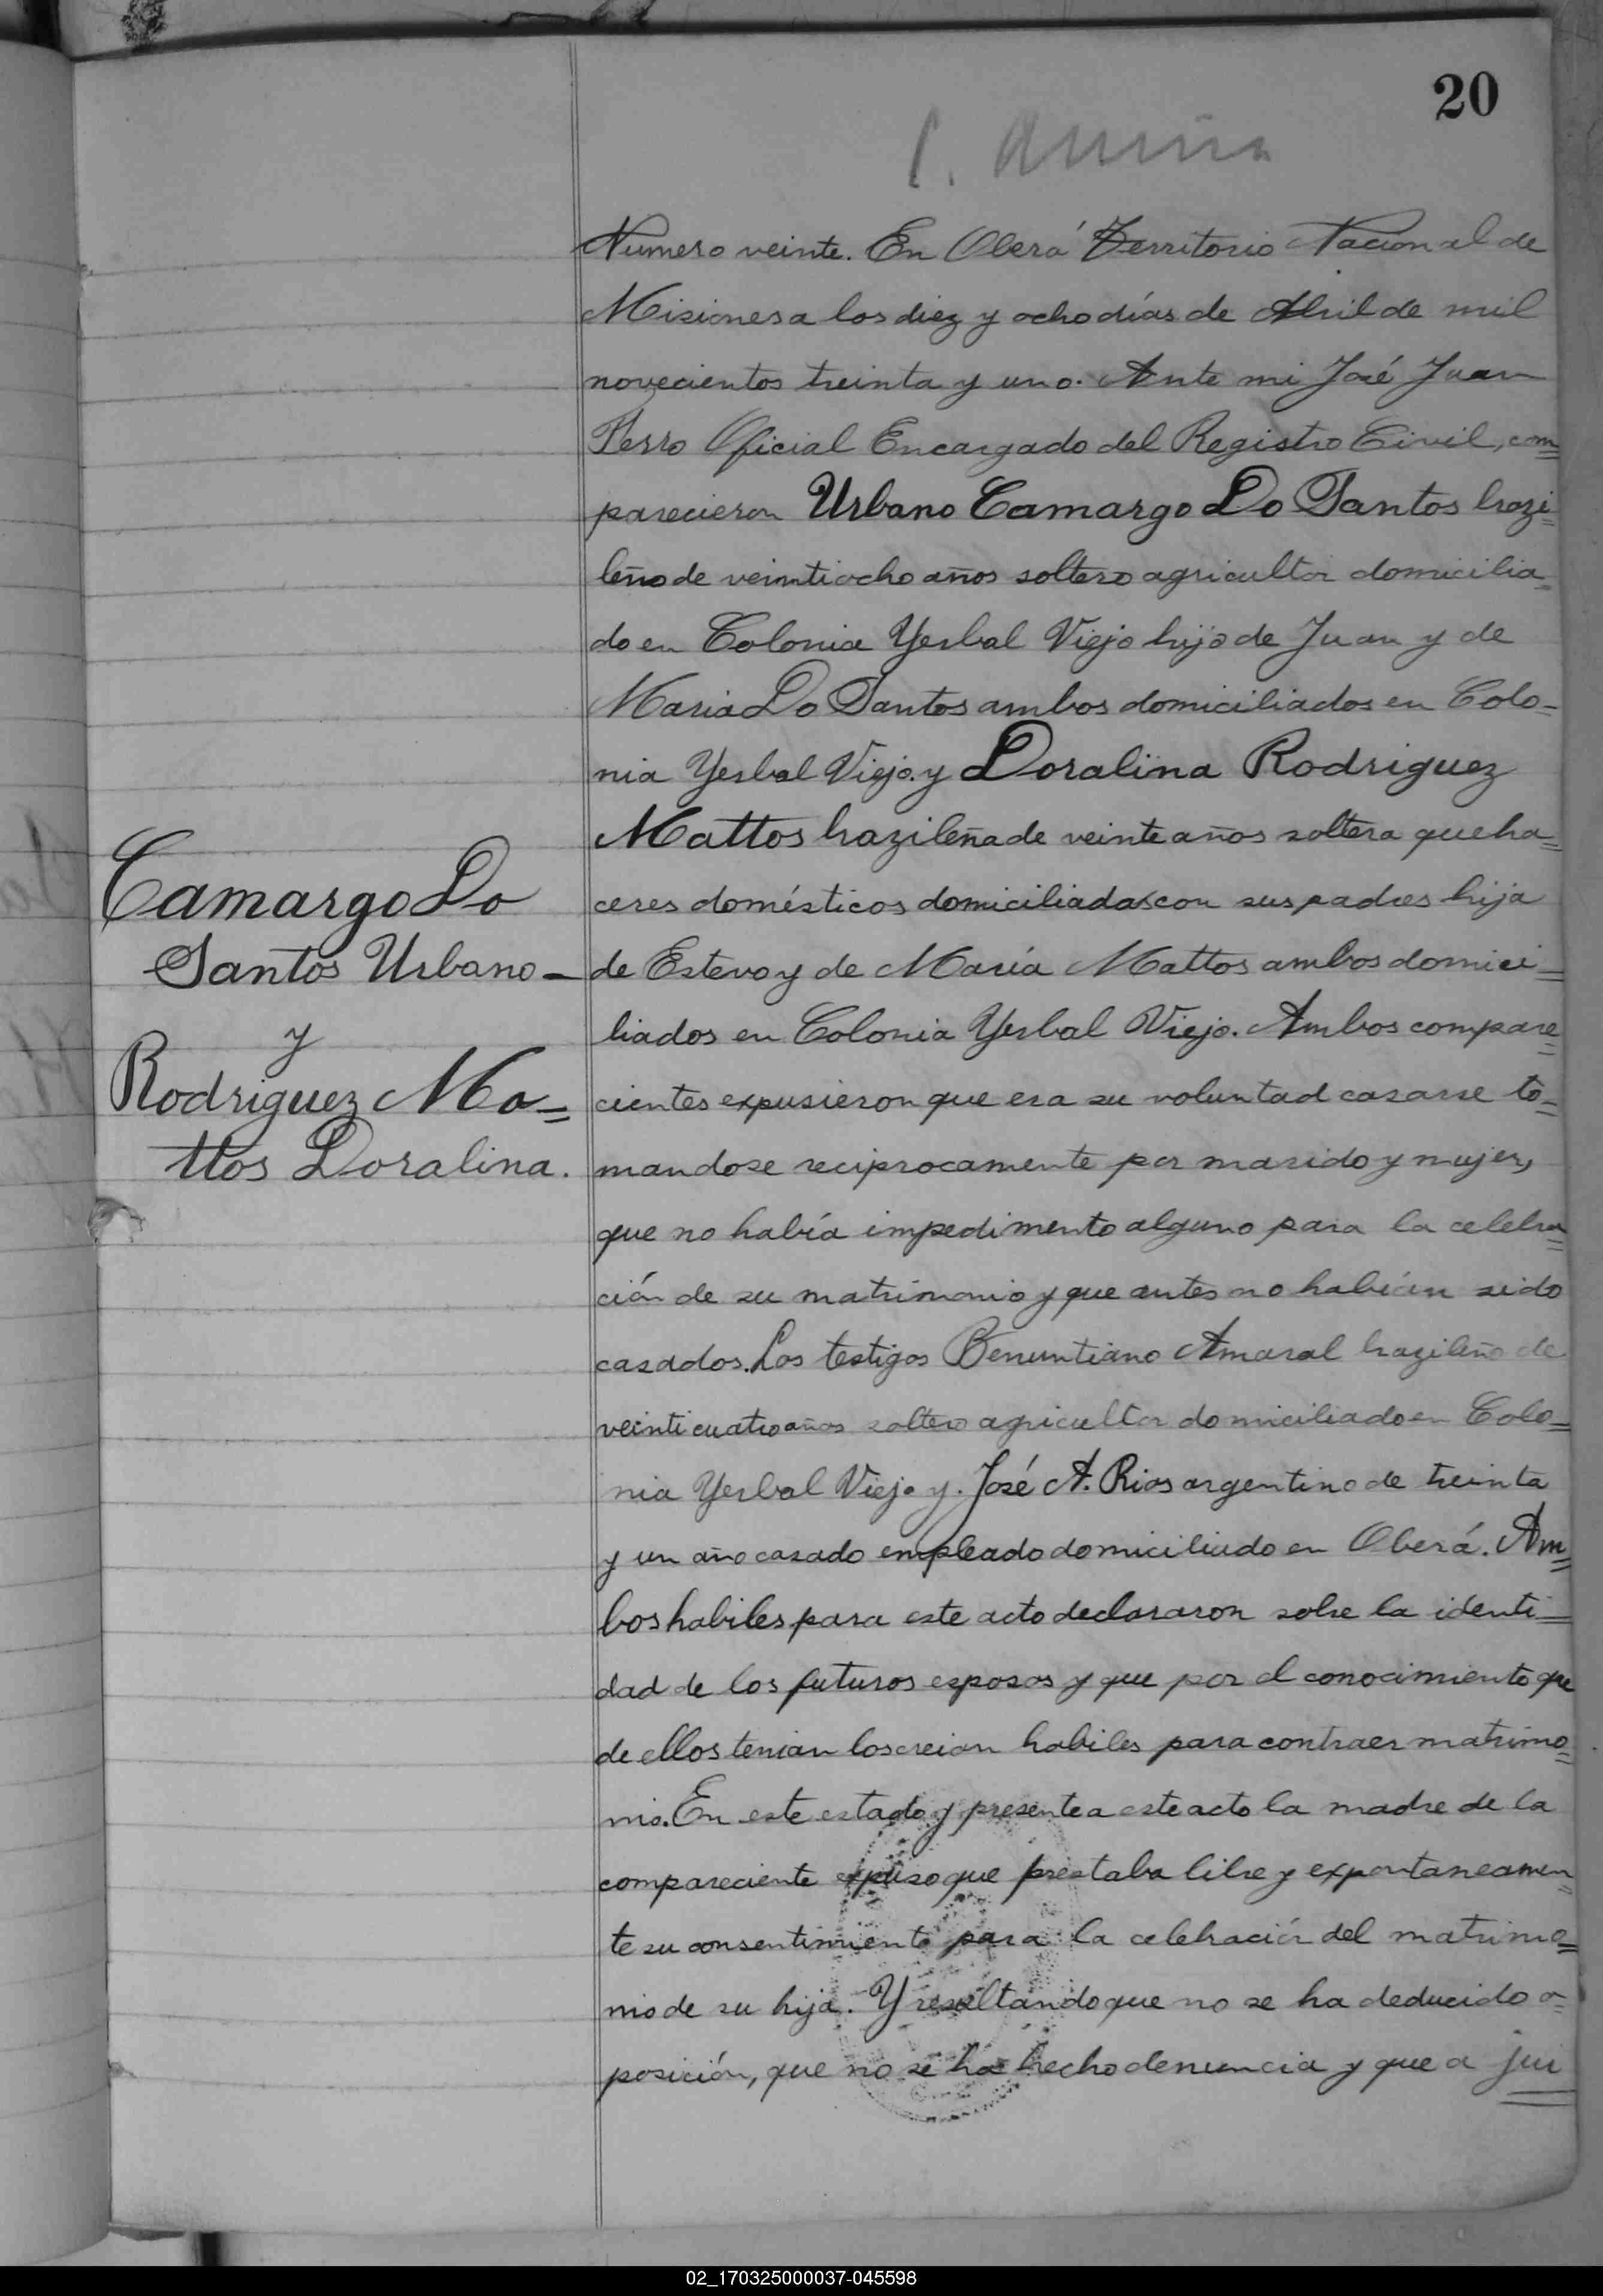 20
Numero veinte. En Oberá Territorio Nacional de
Misiones a los diez y ocho días de Abril de mil
novecientos treinta y uno. Ante mi José Juan
Oficial Encargado del Registro Civil, com=
parecieron Urbano Camargo Do Santos brazi=
leño de veintiocho años soltero agricultor domicilia=
do en Colonia Yerbal Viejo hijo de Juan y de
Maria Do Santos ambos domiciliados en Colo-
nia Yerbal Viejo. y Doralina Rodriguez
Mattos brazileña de veinte años soltera queha=
ceres domésticos domiciliada con sus padres hija
de Estevo y de María Mattos ambos domici=
liados en Colonia Yerbal Viejo. Ambos compare=
cientes expusieron que era su voluntad casarse to=
mandose reciprocamente por marido y mujer,
que no había impedimento alguno para la celebra=
ción de su matrimonio y que antes no habían sido
casados. Los testigos Benuntiano Amaral brazileño de
veinticuatro años soltero agricultor domiciliado en Colo=
nia Yerbal Viejo y. José A. Rios argentino de treinta
y un año casado empleado domiciliado en Oberá. Am=
bos habiles para este acto declararon sobre la identi=
dad de los futuros esposos y que por el conocimiento que
de ellos tenian los creian habiles para contraer matrimo=
nio. En este estado y presente a este acto la madre de la
compareciente expuso que prestaba libre y expontaneamen=
te su consentimiento para la celebración del matrimo=
nio de su hija. Y resultando que no se ha deducido o=
posición, que no se ha hecho denuncia y que a jui
Camargo Do
Santos Urbano-
y
Rodriguez Ma=
ttos Doralina.
02_170325000037-045598